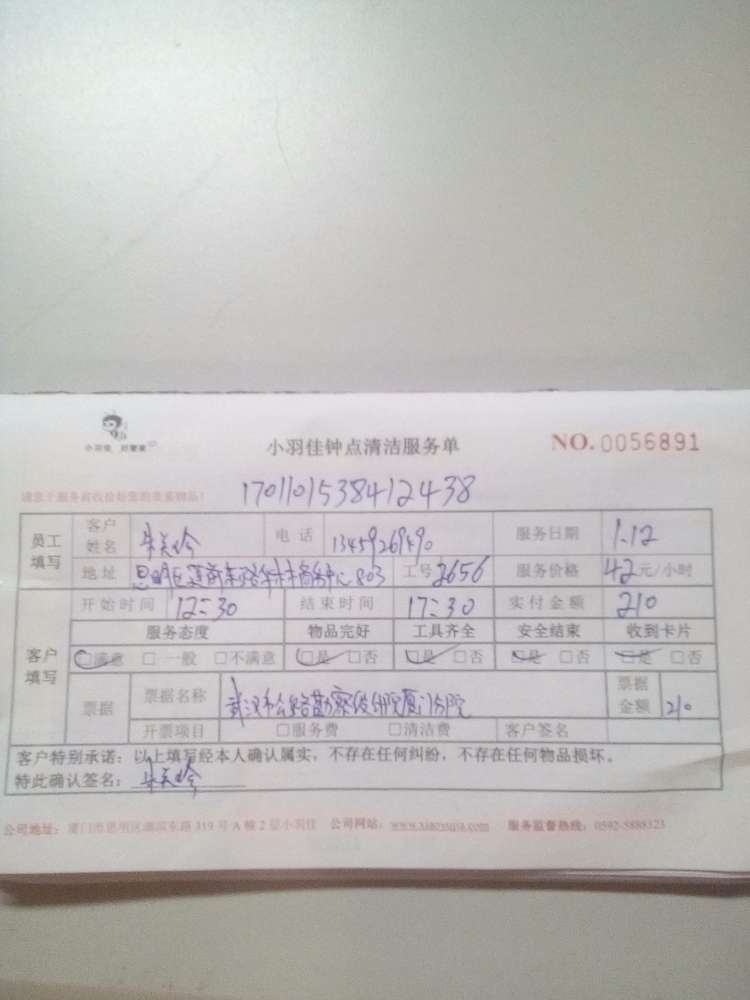 小羽佳 好管家
小羽佳钟点清洁服务单
NO.0056891
请您于服务前收捡好您的贵重物品!
1701101538412438
员工填写 客户姓名 朱美玲 电话 服务日期 1.12
地址 思明区莲前东路 803 工号 2656 服务价格 42元/小时
开始时间 12:30 结束时间 17:30 实付金额 210
客户填写 服务态度 物品完好 工具齐全 安全结束 收到卡片
□满意 □一般 □不满意 □是 □否 □是 □否 □是 □否 □是 □否
票据 票据名称 武汉市公路勘察设计院厦门分院 票据金额 210
开票项目 □服务费 □清洁费 客户签名
客户特别承诺:以上填写经本人确认属实,不存在任何纠纷,不存在任何物品损坏。
特此确认签名:朱美玲
公司地址:厦门市思明区湖滨东路319号A幢2层小羽佳 公司网站: 服务监督热线:0592-5888323